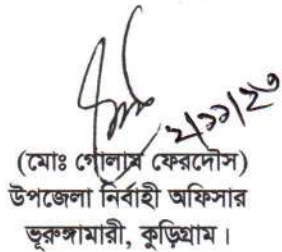 ২/১১/২৩
(মোঃ গোলাম ফেরদৌস)
উপজেলা নির্বাহী অফিসার
ভূরুঙ্গামারী, কুড়িগ্রাম।